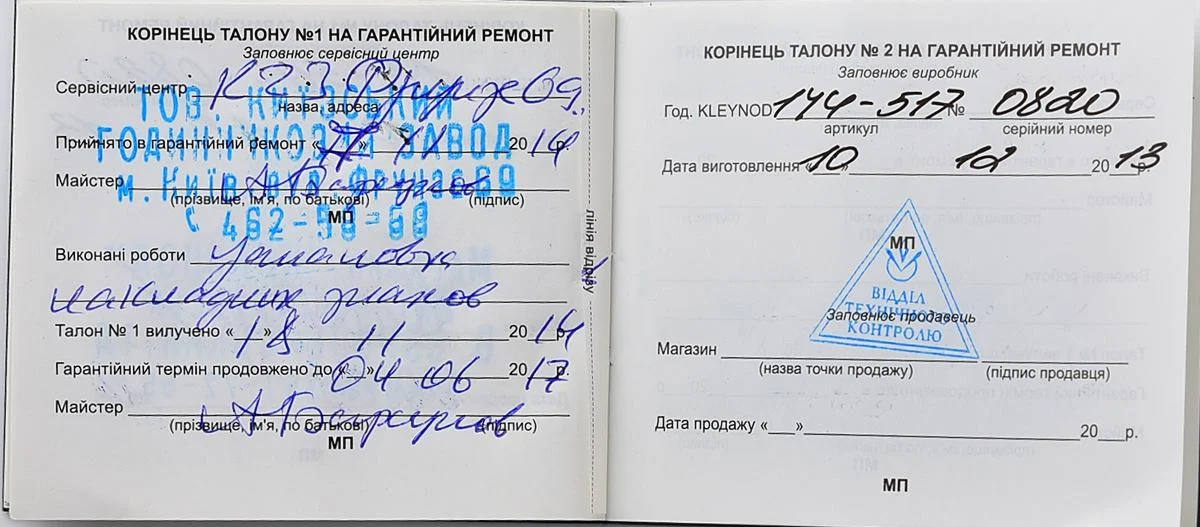 КОРІНЕЦЬ ТАЛОНУ №1 НА ГАРАНТІЙНИЙ РЕМОНТ
Заповнює сервісний центр
Сервісний центр КЧЗ Фрунзе 69.
назва, адреса
ТОВ. КИЇВСЬКИЙ
ГОДИННИКОВИЙ ЗАВОД
м. Київ вул. Фрунзе 69
462-58-69
Прийнято в гарантійний ремонт « » 11 2014
Майстер
(прізвище, ім'я, по батькові) (підпис)
МП
Виконані роботи Установка
накладних знаков
Талон № 1 вилучено «18» 11 2014 р.
Гарантійний термін продовжено до «04» 06 2017
Майстер
(прізвище, ім'я, по батькові) (підпис)
МП
лінія відрізу
КОРІНЕЦЬ ТАЛОНУ № 2 НА ГАРАНТІЙНИЙ РЕМОНТ
Заповнює виробник
Год. KLEYNOD 144-517 № 0820
артикул серійний номер
Дата виготовлення «10» 12 2013 р.
МП
ВІДДІЛ
ТЕХНІЧНОГО
КОНТРОЛЮ
Заповнює продавець
Магазин
(назва точки продажу) (підпис продавця)
Дата продажу «___» 20___р.
МП